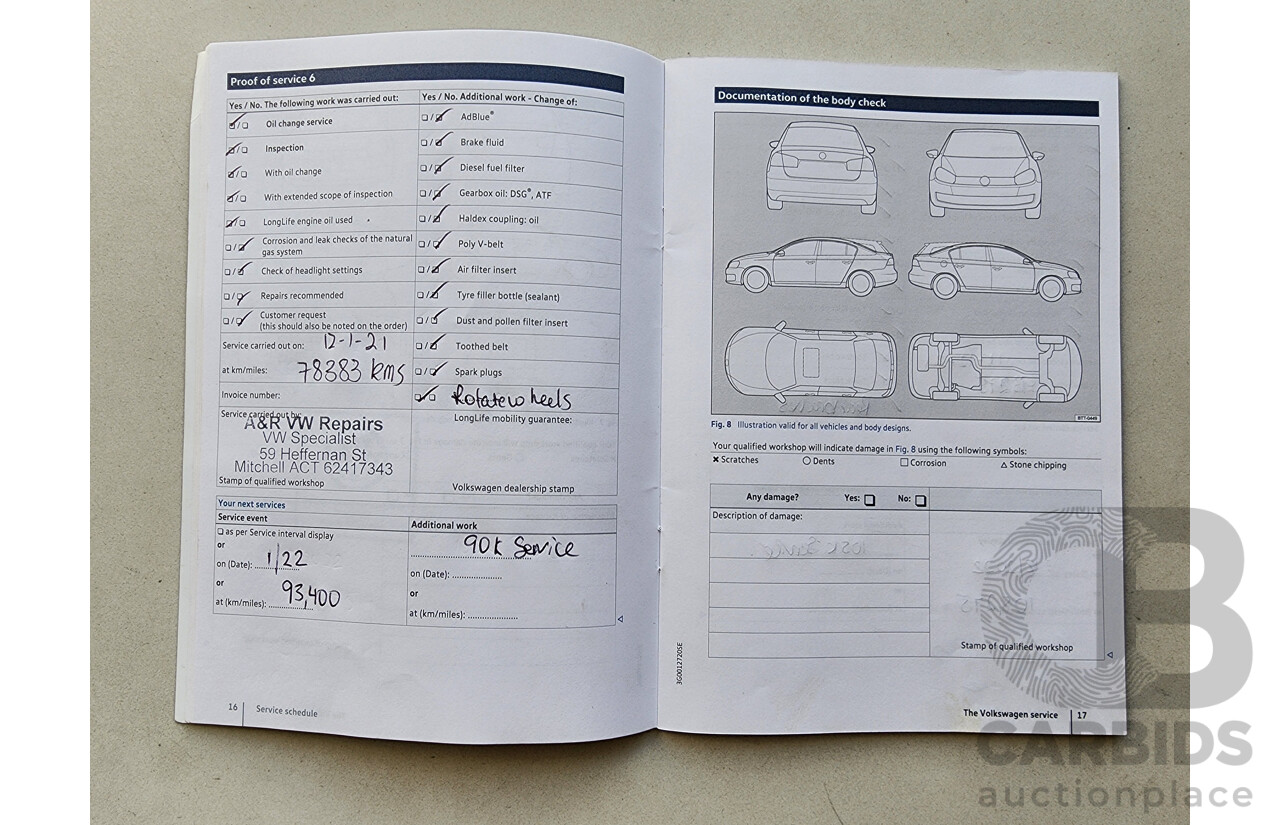 Proof of service 6
Yes / No. The following work was carried out:
Oil change service
Inspection
With oil change
With extended scope of inspection
LongLife engine oil used
Corrosion and leak checks of the natural
gas system
Check of headlight settings
Repairs recommended
Customer request
(this should also be noted on the order)
Service carried out on: 12-1-21
at km/miles: 78383 kms
Invoice number:
Service carried out by:
A&R VW Repairs
VW Specialist
59 Heffernan St
Mitchell ACT 62417343
Stamp of qualified workshop
Yes / No. Additional work - Change of:
AdBlue®
Brake fluid
Diesel fuel filter
Gearbox oil: DSG®, ATF
Haldex coupling: oil
Poly V-belt
Air filter insert
Tyre filler bottle (sealant)
Dust and pollen filter insert
Toothed belt
Spark plugs
Rotate wheels
LongLife mobility guarantee:
Volkswagen dealership stamp
Your next services
Service event
as per Service interval display
or
on (Date): 1/22
or
at (km/miles): 93,400
Additional work
90K Service
on (Date):
or
at (km/miles):
16 Service schedule
Documentation of the body check
BTT-0449
Fig. 8 Illustration valid for all vehicles and body designs.
Your qualified workshop will indicate damage in Fig. 8 using the following symbols:
Scratches Dents Corrosion Stone chipping
Any damage? Yes: No:
Description of damage:
Stamp of qualified workshop
3G0012720SE
The Volkswagen service 17
CB
CARBIDS
auctionplace